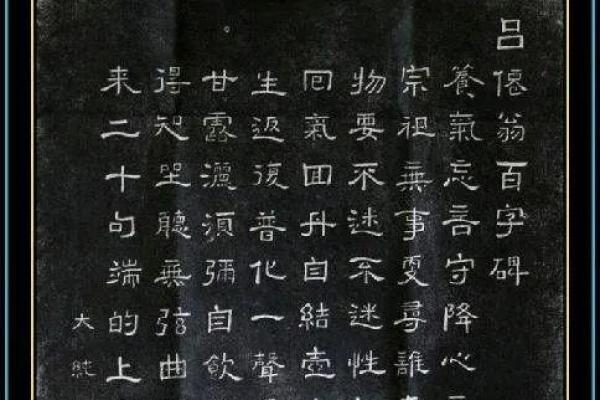 吕僊翁百字碑
養氣忘言守降心
宗祖無事更尋誰
物要不迷不迷性
回氣回丹自結壺
生返復普化一聲
甘露灑須彌自飲
得知坐聽無弦曲
来二十句端的上
大純